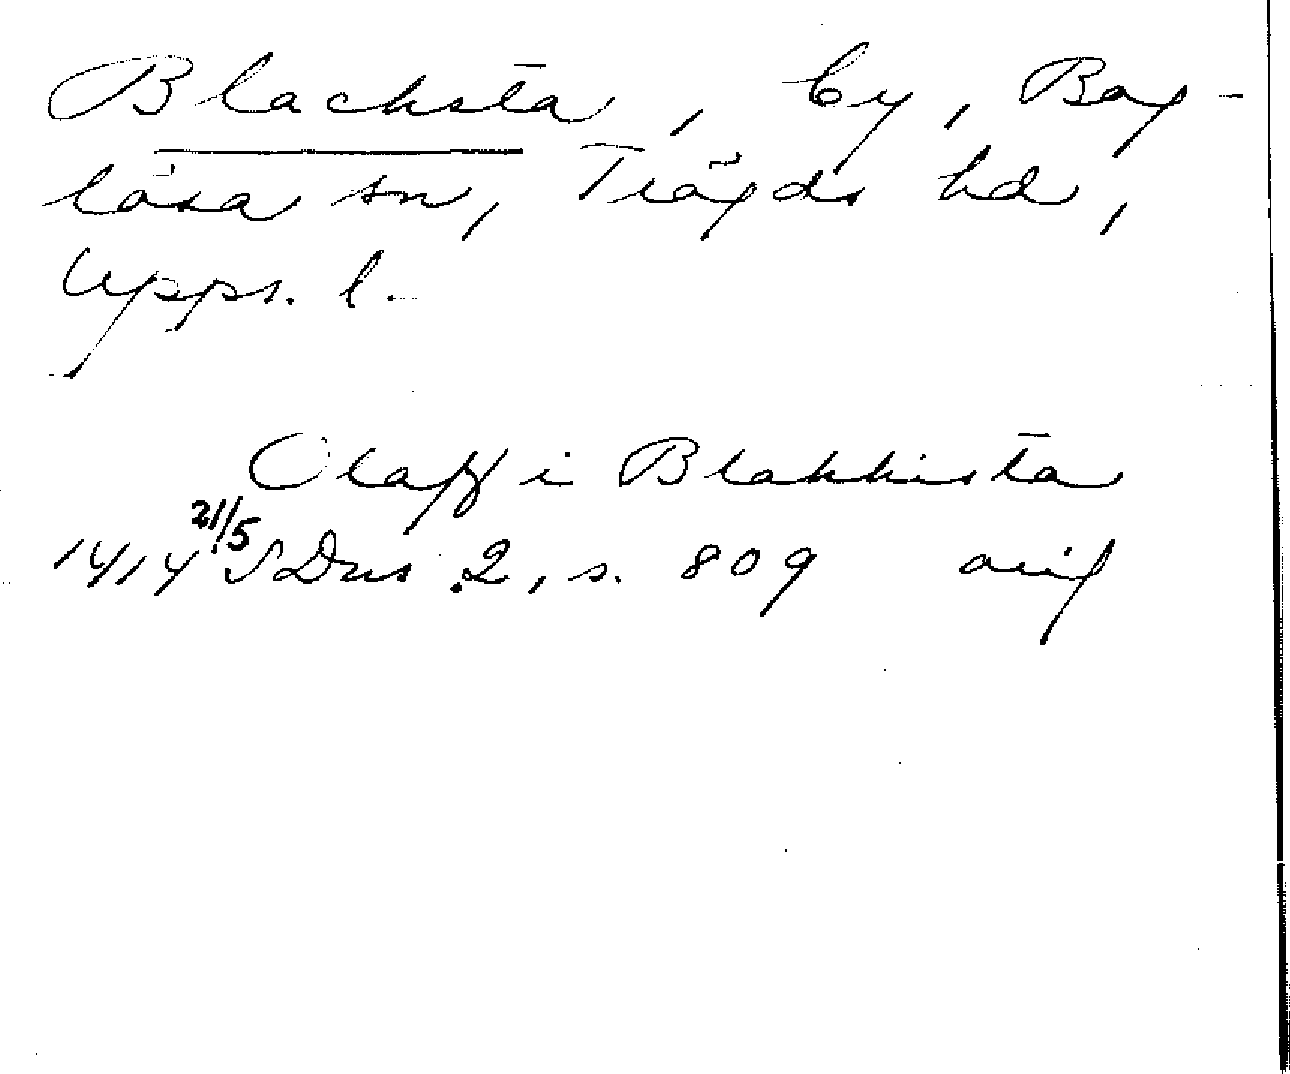 Blacksta, by, Bog-
lösa sn, Trögds hd,
Upps. l.
Olaff i Blakkista
1414 21/5 SDns 2, s. 809 orig